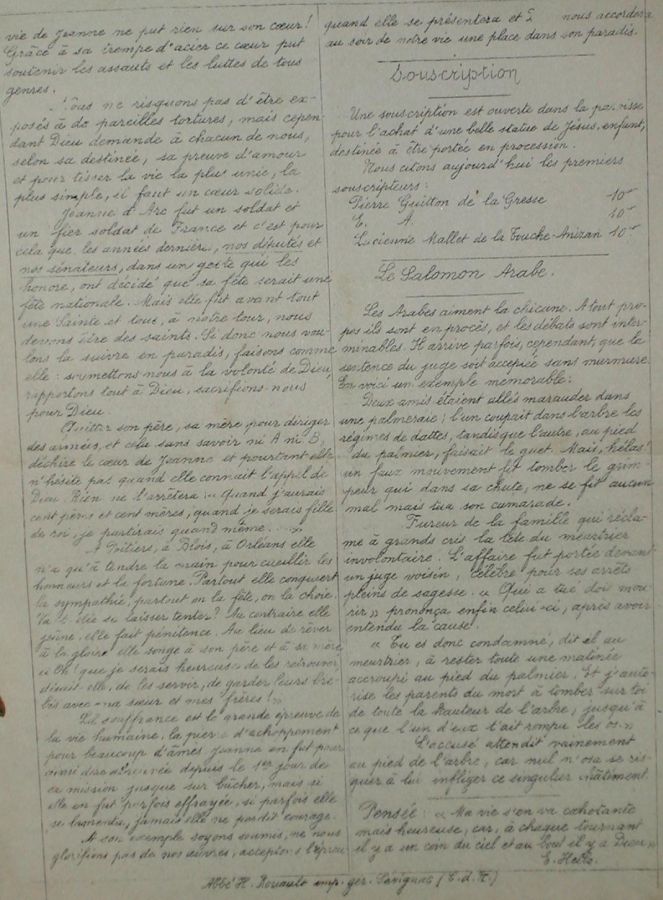 vie de Jeanne ne put rien sur son cœur!
Grâce à sa trempe d'acier ce cœur put
soutenir les assauts et les luttes de tous
genres.
Nous ne risquons pas d'être ex-
posés à de pareilles tortures, mais cepen-
dant Dieu demande à chacun de nous,
selon sa destinée, sa preuve d'amour
et pour tisser la vie la plus unie, la
plus simple, il faut un cœur solide.
Jeanne d'Arc fut un soldat et
un fier soldat de France et c'est pour
cela que les années dernières, nos députés et
nos sénateurs, dans un geste qui les
honore, ont décidé que sa fête serait une
fête nationale. Mais elle fut avant tout
une Sainte et tous, à notre tour, nous
devons être des saints. Si donc nous vou-
lons la suivre en paradis, faisons comme
elle: soumettons-nous à la volonté de Dieu,
rapportons tout à Dieu, sacrifions-nous
pour Dieu.
Quitter son père, sa mère, pour diriger
des armées, et cela sans savoir ni A ni B,
déchire le cœur de Jeanne et pourtant elle
n'hésite pas quand elle connaît l'appel de
Dieu. Rien ne l'arrêtera: « Quand j'aurais
cent pères et cent mères, quand je serais fille
de roi, je partirais quand même. . . »
A Poitiers, à Blois, à Orléans elle
n'a qu'à tendre la main pour cueillir les
honneurs et la fortune. Partout elle conquiert
la sympathie, partout on la fête, on la choie.
Va-t-elle se laisser tenter? Au contraire elle
jeûne, elle fait pénitence. Au lieu de rêver
à la gloire elle songe à son père et à sa mère
« Oh! que je serais heureuse de les retrouver
disait-elle, de les servir, de garder leurs bre-
bis avec ma sœur et mes frères! »
La souffrance est le grande épreuve de
la vie humaine, la pierre d'achoppement
pour beaucoup d'âmes. Jeanne en fut pour
ainsi dire abreuvée depuis le 1er jour de
sa mission jusque sur bûcher, mais si
elle en fut parfois effrayée, si parfois elle
se lamenta, jamais elle ne perdit courage.
A son exemple soyons soumis, ne nous
glorifions pas de nos œuvres, acceptons l'épreuve
quand elle se présentera et nous accordera
au soir de notre vie une place dans son paradis.
Souscription
Une souscription est ouverte dans la paroisse
pour l'achat d'une belle statue de Jésus-enfant,
destinée à être portée en procession.
Nous citons aujourd'hui les premiers
souscripteurs:
Pierre Guitton de la Gresse 10
E. A. 10
Lucienne Mallet de la Touche-Anizan 10
Le Salomon Arabe.
Les Arabes aiment la chicane. A tout pro-
pos ils sont en procès, et les débats sont inter-
minables. Il arrive parfois, cependant, que la
sentence du juge soit acceptée sans murmure.
En voici un exemple memorable:
Deux amis étaient allés marauder dans
une palmeraie; l'un coupait dans l'arbre les
régimes de dattes, tandis que l'autre, au pied
du palmier, faisait le guet. Mais, hélas!
un faux mouvement fit tomber le grim-
peur qui dans sa chute, ne se fit aucun
mal mais tua son camarade.
Fureur de la famille qui récla-
me à grands cris la tête du meurtrier
involontaire. L'affaire fut portée devant
un juge voisin, célèbre pour ses arrêts
pleins de sagesse. « Qui a tué doit mou-
rir » prononça enfin celui-ci, après avoir
entendu la cause.
« Tu es donc condamné, dit-il au
meurtrier, à rester toute une matinée
accroupi au pied du palmier. Et j'auto-
rise les parents du mort à tomber sur toi
de toute la hauteur de l'arbre, jusqu'à
ce que l'un d'eux t'ait rompu les os.»
L'accusé attendit vainement
au pied de l'arbre, car nul n'osa se ris-
quer à lui infliger ce singulier châtiment.
Pensée: « Ma vie s'en va cahotante
mais heureuse, car, à chaque tournant
il y a un coin du ciel et au bout il y a Dieu »
E. Hello.
Abbé H. Rouault imp. ger. Sévignac (C.d.N.)